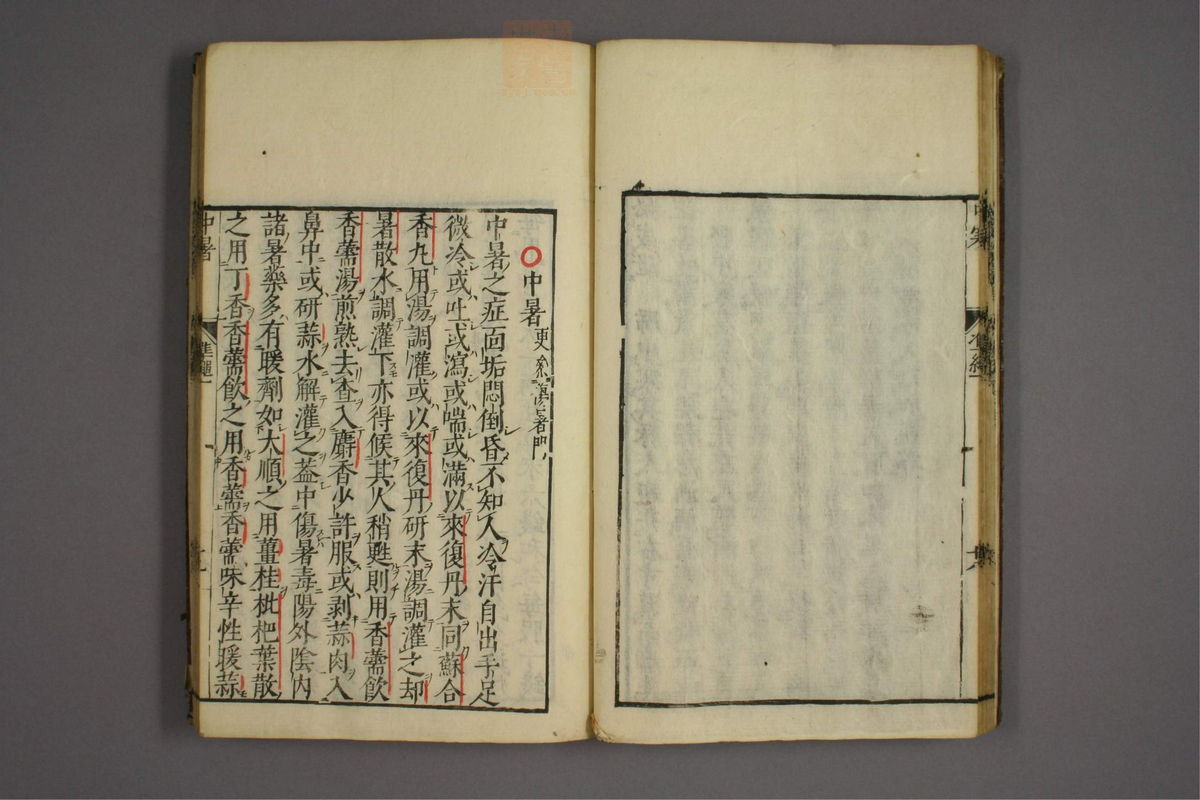 中暑 更參傷暑門
中暑之症面垢悶倒昏不知人冷汗自出手足
微冷或吐或瀉或喘或滿以來復丹末同蘇合
香丸用湯調灌或以來復丹研末湯調灌之却
暑散水調灌下亦得候其人稍甦則用香薷飲
香薷湯煎熟去查入麝香少許服或剥蒜肉入
鼻中或研蒜水解灌之葢中傷暑毒陽外陰内
諸暑藥多有暖劑如大順之用薑桂枇杷葉散
之用丁香香薷飲之用香薷香薷味辛性暖蒜
中暑